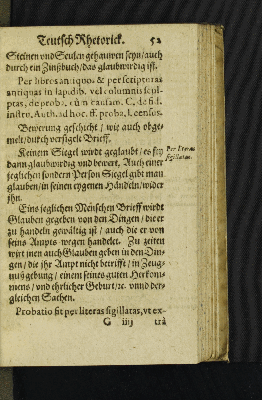 Teutsch Rhetorick. 52
Steinen vnd Seulen gehauwen seyn/auch
durch ein Zinßbuch/das glaubwirdig ist.
Per libros antiquos & per scripturas
antiquas in lapidib. vel columnis scul-
ptas, de proba. cùm causam. C. de fil.
instru. Auth. ad hoc. ff. proba. l. census.
Bewerung geschicht / wie auch obge-
melt/durch versigelt Brieff.
Keinem Siegel wirdt geglaubt/es sey
dann glaubwirdig vnd bewert, Auch einer
jeglichen sondern Person Siegel gibt man
glauben/in seinen eygenen Händeln/wider
jhn.
Per literas
sigillatas.
Eins jeglichen Menschen Brieff wirdt
Glauben gegeben von den Dingen/die er
zu handeln gewältig ist / auch die er von
seins Ampts wegen handelt. Zu zeiten
wirt men auch Glauben geben in den Din-
gen/die jhr Ampt nicht betrifft/in Zeug-
nuß gebung / einem seines guten Herkom-
mens / vnd ehrlicher Geburt/ꝛc. vnnd der-
gleichen Sachen.
Probatio fit per literas sigillatas, vt ex-
G iiij tra